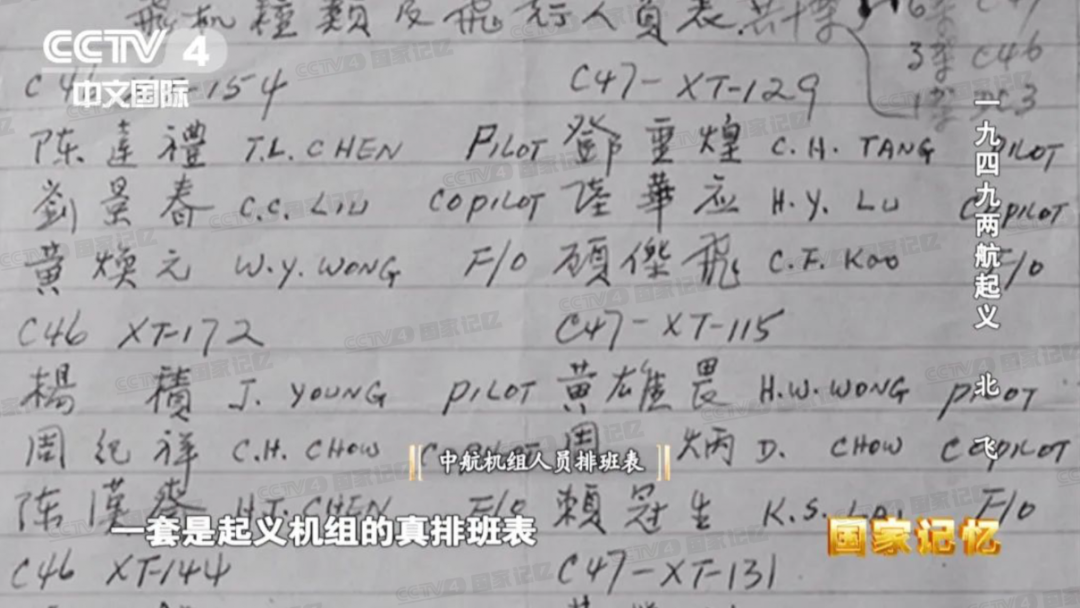 CCTV 4
中文国际
飛机種類及飛行人員表
3架 C46
C46 XT-154
C47-XT-129
陈達禮 T.L. CHEN PILOT
鄧重煌 C.H. TANG PILOT
劉景春 C.C. LIU COPILOT
陸華应 H.Y. LU COPILOT
黄焕元 W.Y. WONG F/O
顾傑飛 C.F. KOO F/O
C46 XT-172
C47-XT-115
楊積 J. YOUNG PILOT
黄雄畏 H.W. WONG PILOT
周紀祥 C.H. CHOW COPILOT
周炳 D. CHOW COPILOT
陈漢 H.J. CHEN F/O
賴冠生 K.S. LAI F/O
C46 XT-144
C47-XT-131
中航机组人员排班表
一套是起义机组的真排班表
一九四九两航起义 北飞
国家记忆